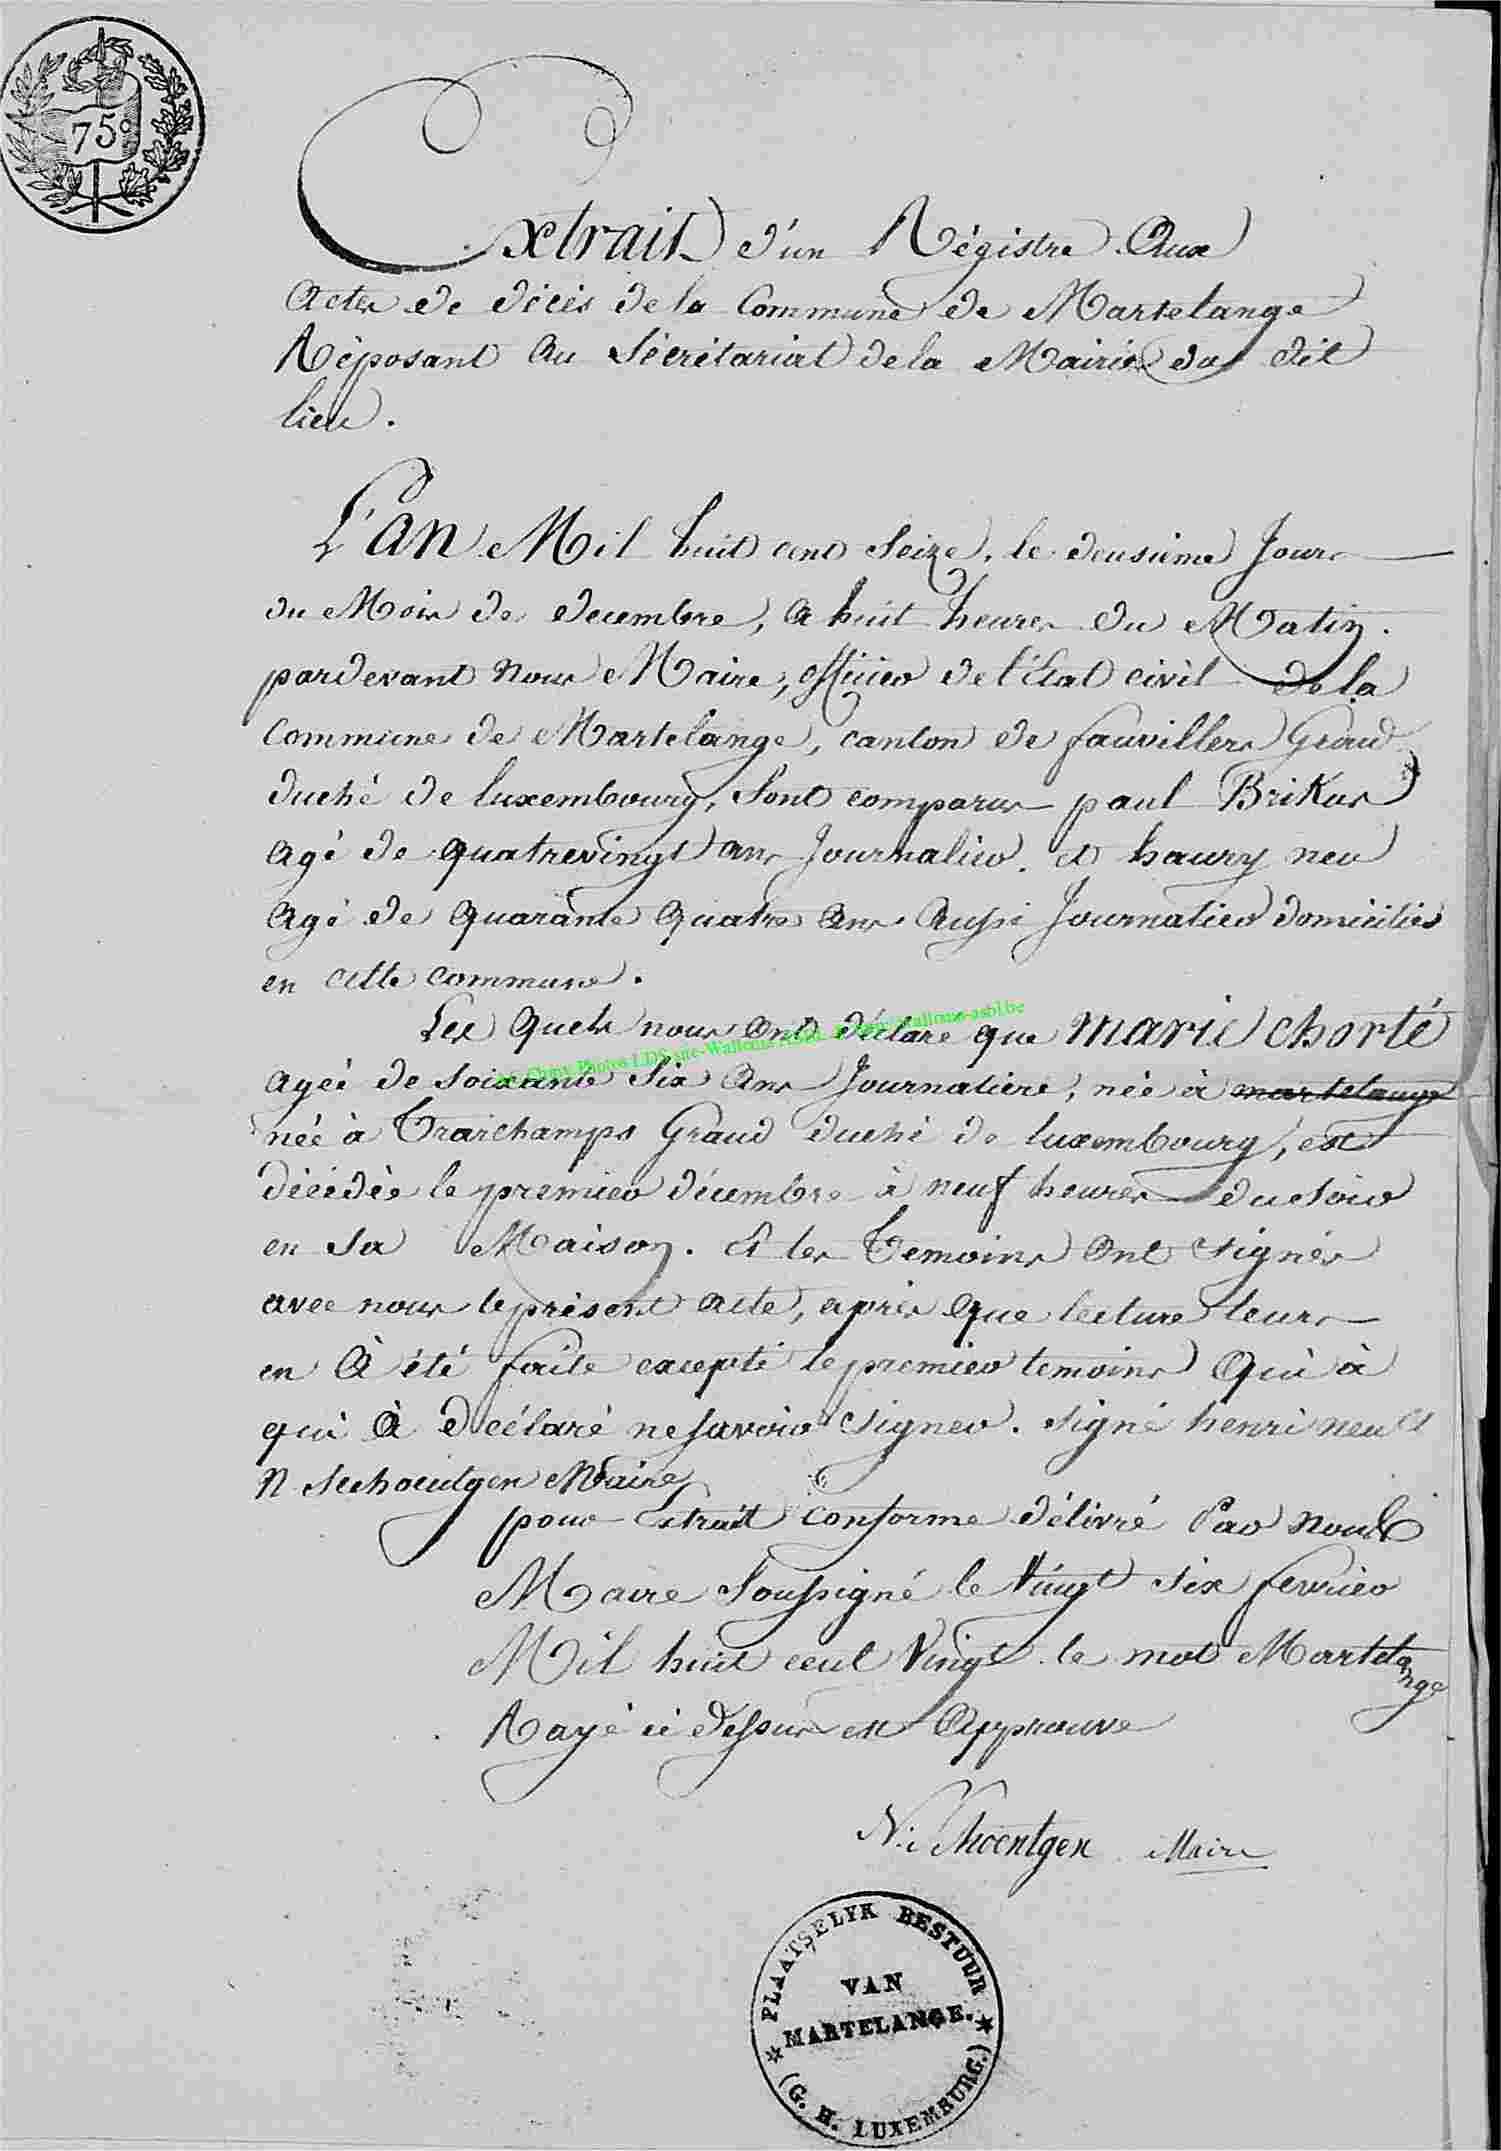 75c
Extrait d'un Régistre Aux
Actes de décès de la Commune de Martelange
Réposant Au Sécrétariat de la Mairie du dit
lieu.
L'an Mil huit cent Seize, le deusième Jour
du Mois de decembre, a huit heures du Matin.
pardevant nous Maire, officier de l'État civil de la
Commune de Martelange, canton de fauvillers Grand
duché de luxembourg, Sont comparus paul BriKus
agé de quatrevingt ans Journalier. et haury neu
agé de quarante quatre Ans Aussi Journalier domiciliés
en cette commune.
Les quels nous Ont déclaré que Marie chorté
agée de soixante Six Ans Journalière, née à martelange
née à Trarchamps Grand duché de luxembourg, est
décédée le premier décembre à neuf heures du Soir
en Sa Maison. et les Temoins Ont Signés
avec nous le présent acte, après que lecture leurs
en À été faite excepté le premier temoins Qui à
qui À Décélaré ne Savoir Signer. Signé henri neu et
N Schoentgen Maire
pour Extrait Conforme Délivré Par Nous
Maire Soussigné le Vingt six fevrier
Mil huit cent Vingt. le mot Martelange
Rayé ci Dessus est Approuvé
N: Schoentgen Maire
PLAATSELYK BESTUUR
VAN
MARTELANGE.
(G. H. LUXEMBURG.)